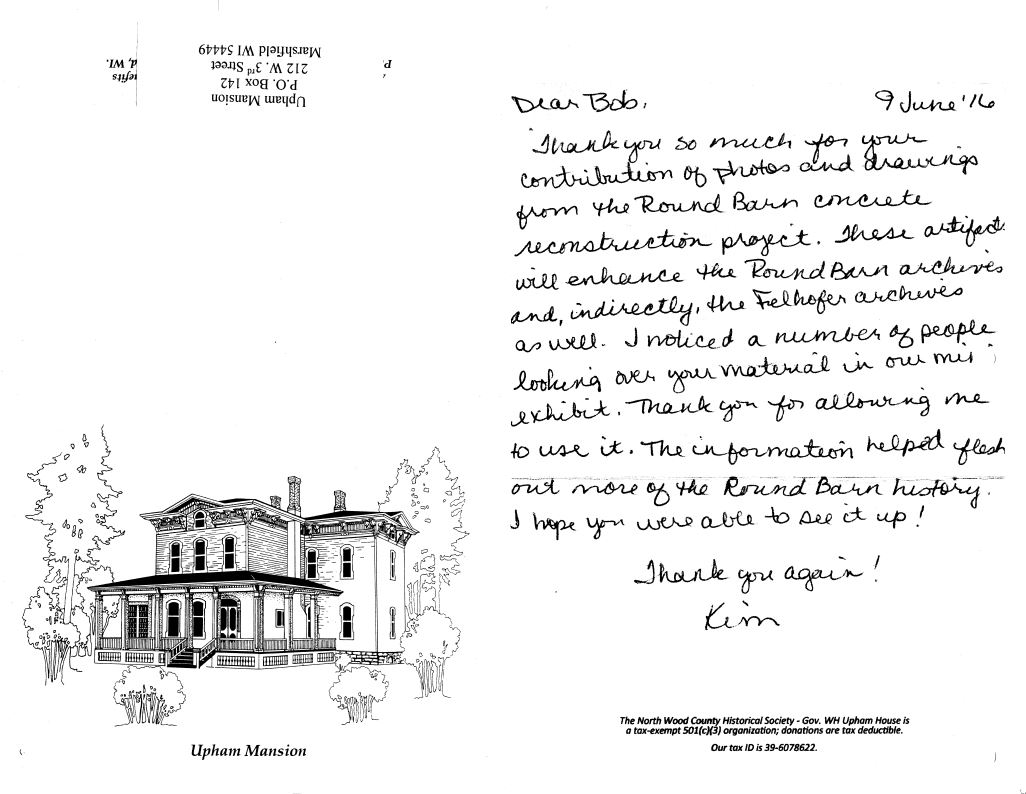 Upham Mansion
P.O. Box 142
212 W. 3rd Street
Marshfield WI 54449
d, WI.
efits
P.
Upham Mansion
Dear Bob, 9 June '16
Thank you so much for your
contribution of photos and drawings
from the Round Barn concrete
reconstruction project. These artifact
will enhance the Round Barn archives
and, indirectly, the Felhofer archives
as well. I noticed a number of people
looking over your material in our
exhibit. Thank you for allowing me
to use it. The information helped flesh
out more of the Round Barn history.
I hope you were able to see it up!
Thank you again!
Kim
The North Wood County Historical Society - Gov. WH Upham House is
a tax-exempt 501(c)(3) organization; donations are tax deductible.
Our tax ID is 39-6078622.